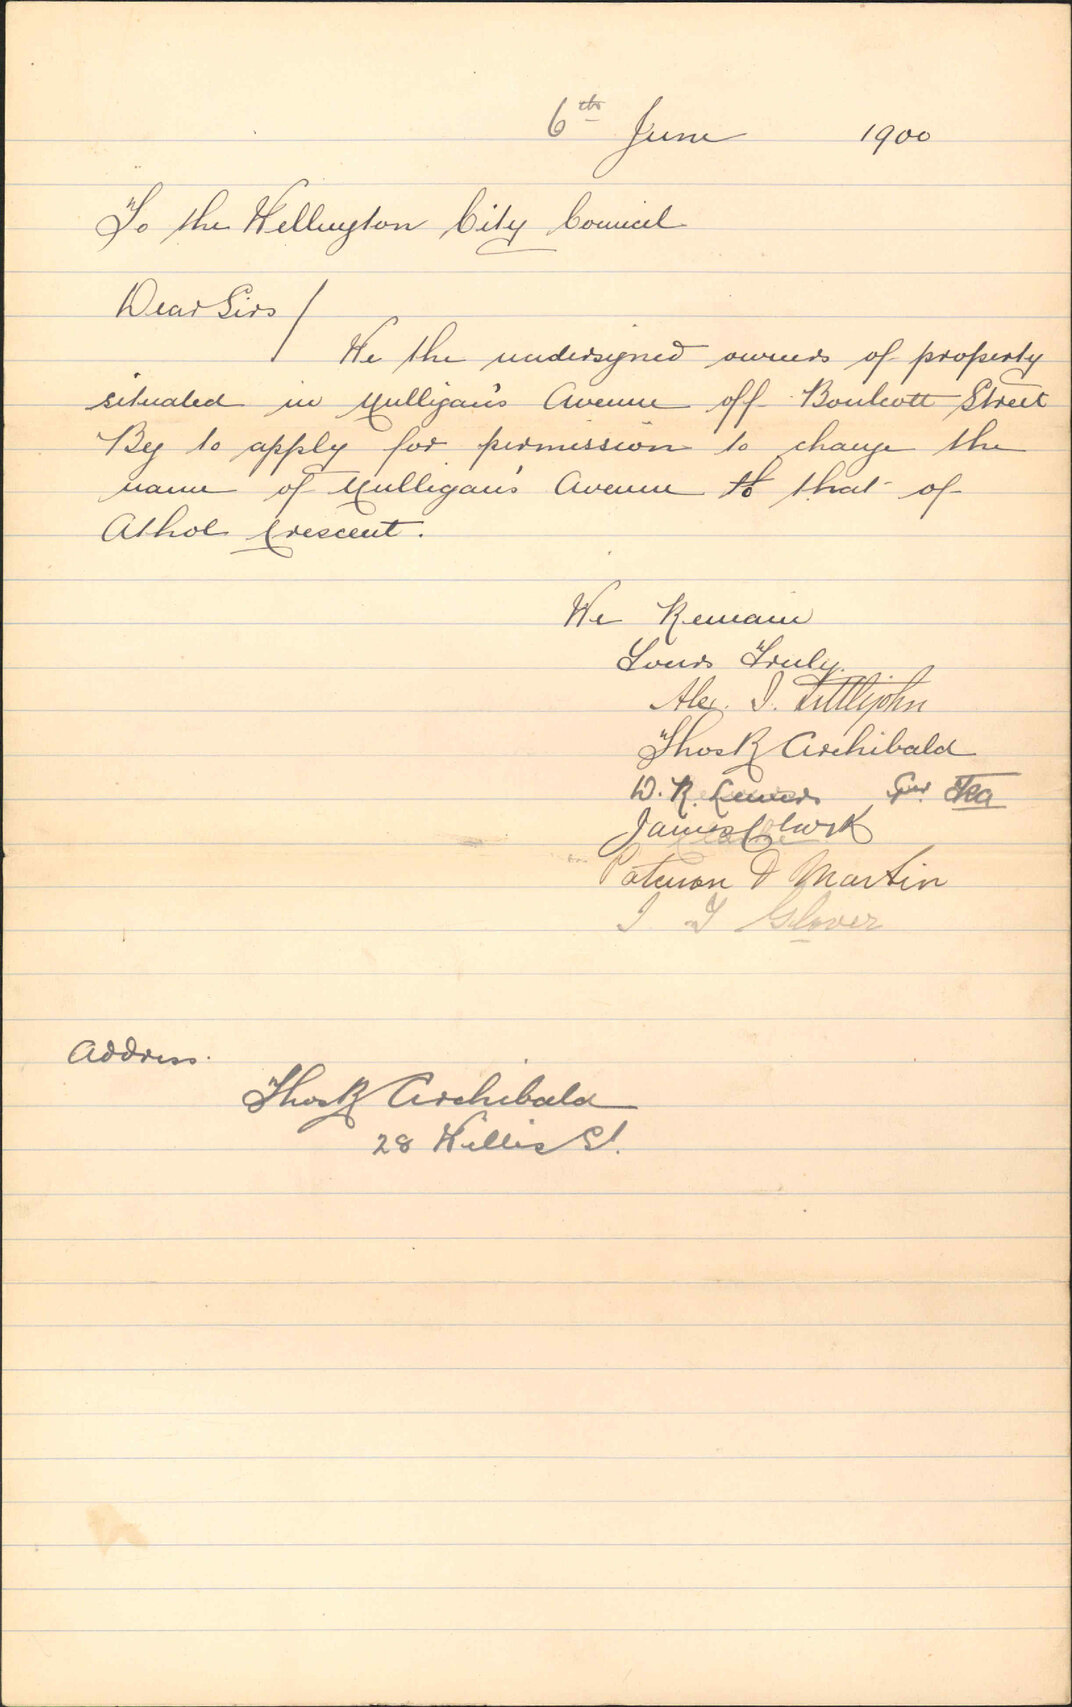 6th June 1900
To the Wellington City Council
Dear Sirs /
We the undersigned owners of property
situated in Mulligan's Avenue off Boulcott Street
Beg to apply for permission to change the
name of Mulligan's Avenue to that of
Athol Crescent.
We Remain
Yours Truly.
Alex. I. Littlejohn
Thos R Archibald
W. R.
James Clark
Paterson & Martin
I Y Glover
Address.
Thos R Archibald
28 Willis St.